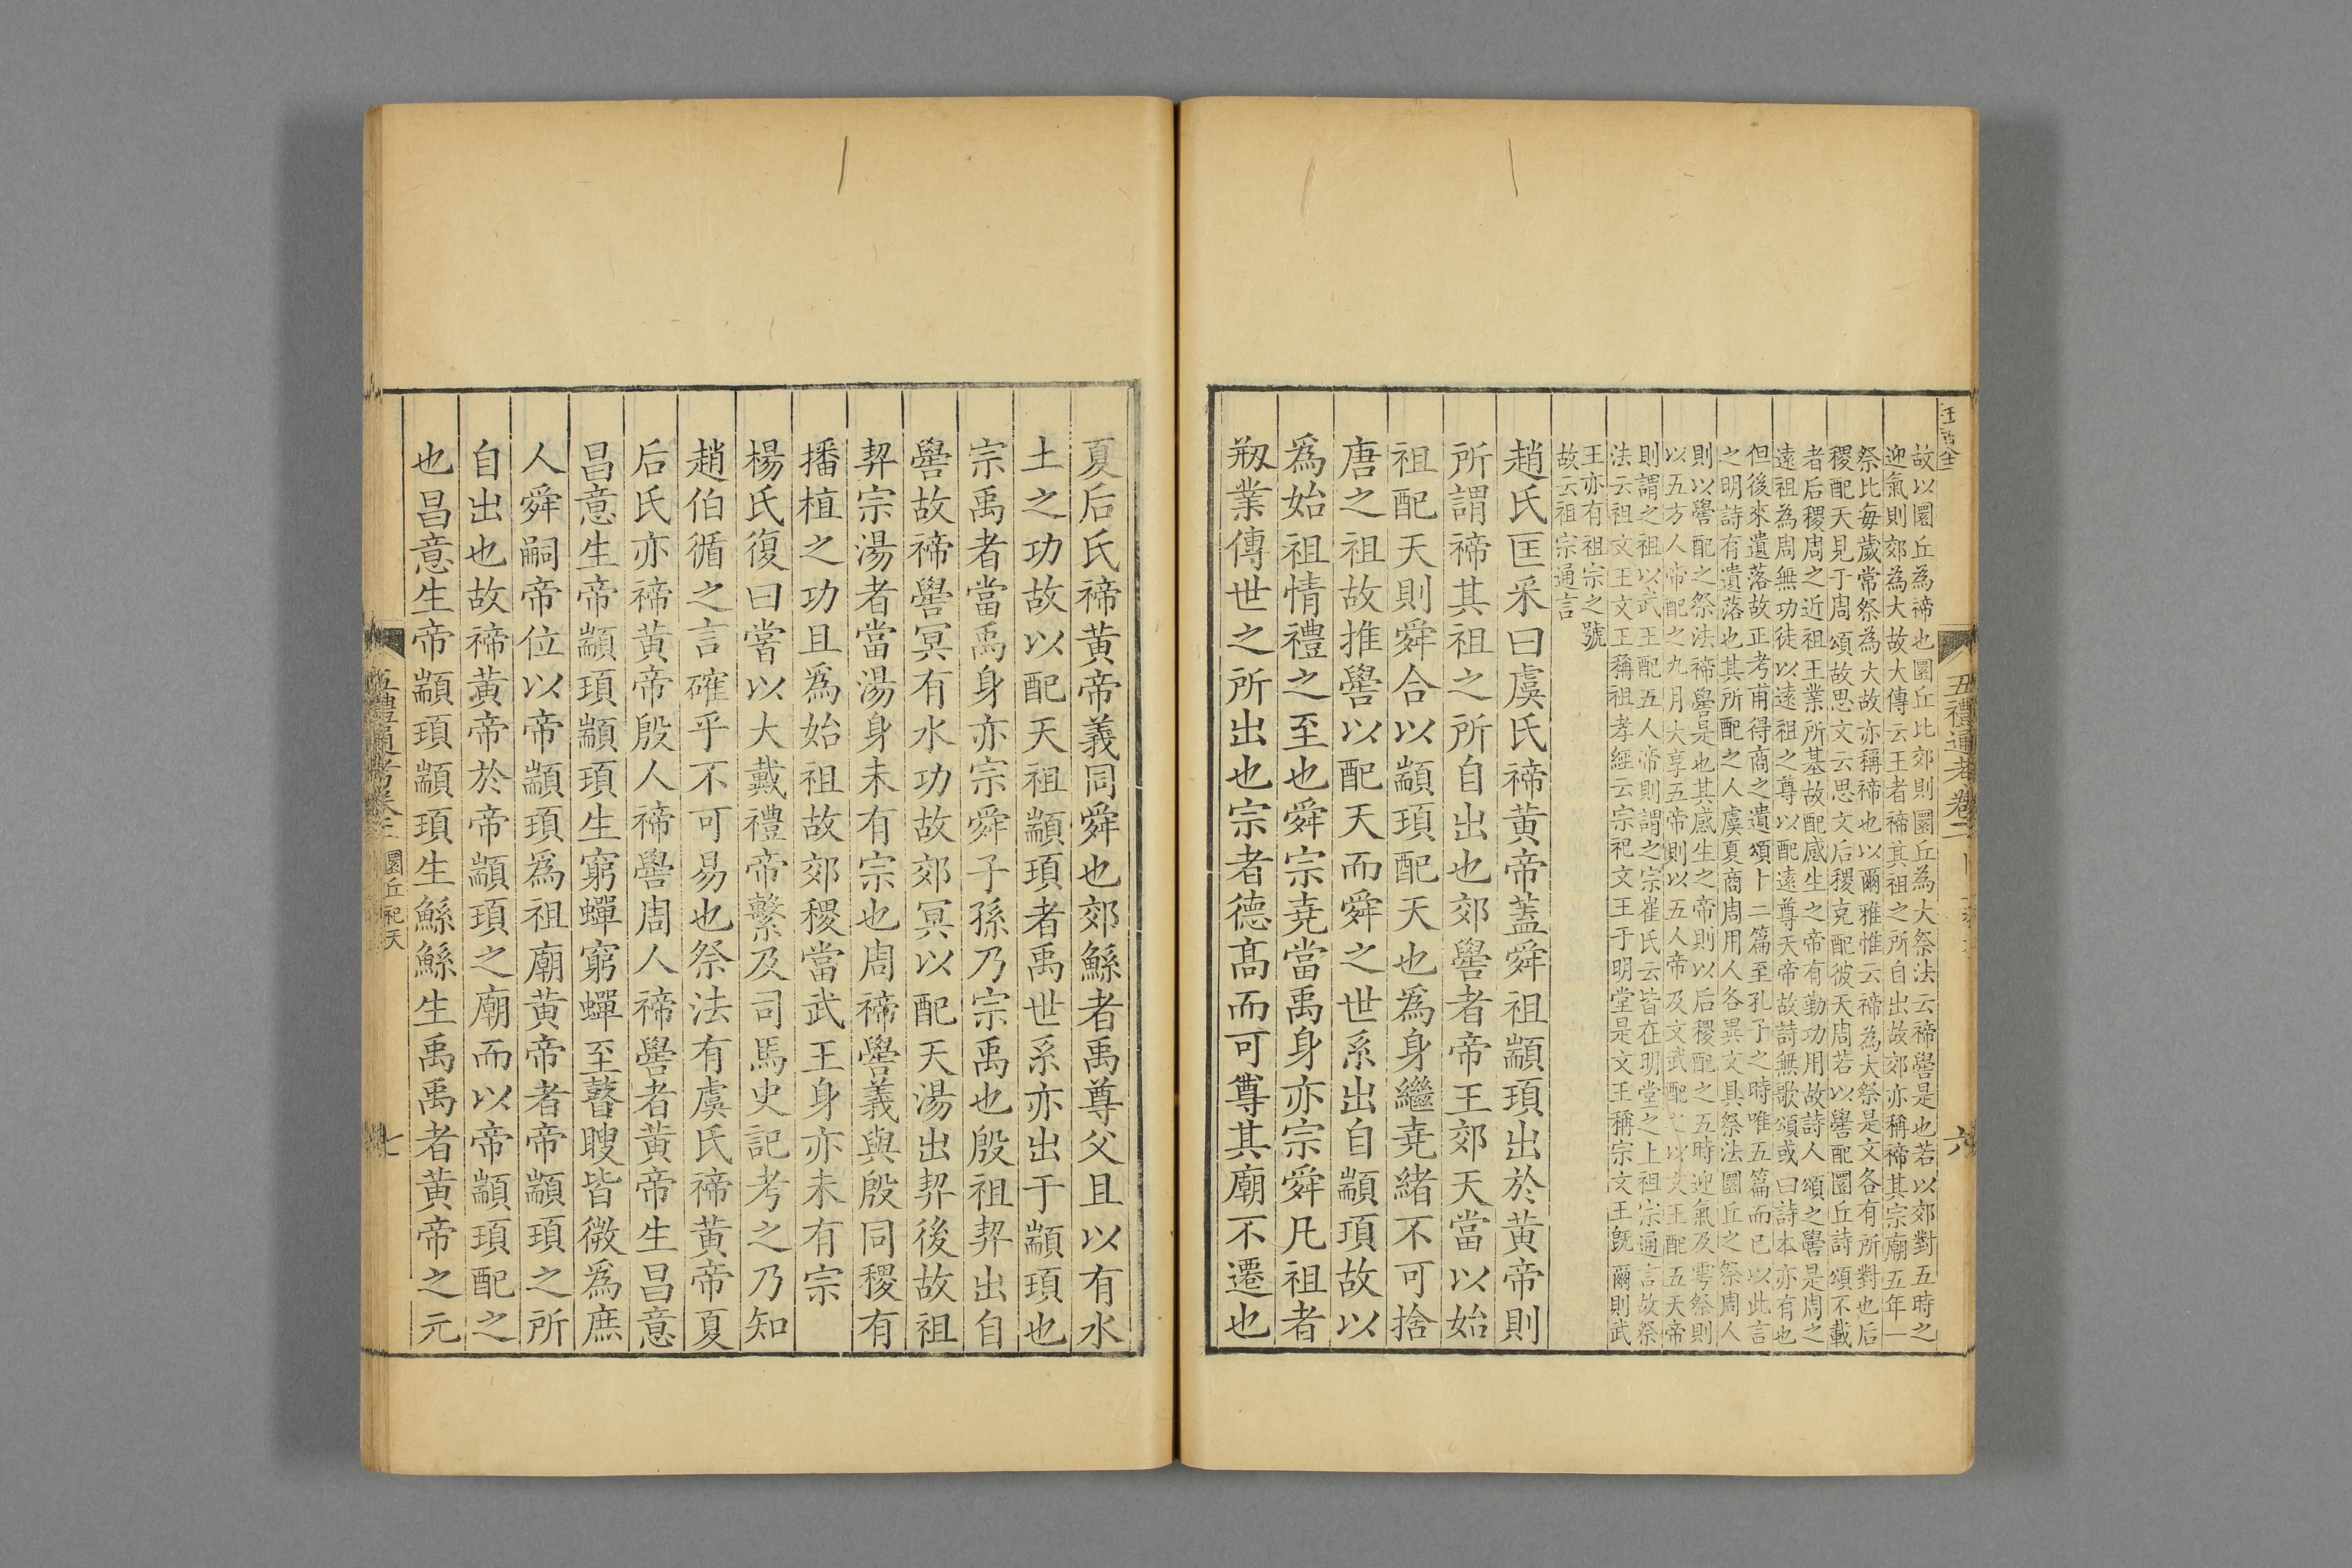 五禮通考卷
六
故以圜丘為禘也圜丘比郊則圜丘為大祭法云禘嚳是也若以郊對五時之
迎氣則郊為大故大傳云王者禘其祖之所自出故郊亦稱禘其宗廟五年一
祭比每歲常祭為大故亦稱禘也以爾雅惟云禘為大祭是文各有所對也后
稷配天見于周頌故思文云思文后稷克配彼天周若以嚳配圜丘詩頌不載
者后稷周之近祖王業所基故配感生之帝有勤功用故詩人頌之嚳是周之
遠祖為周無功徒以遠祖之尊以配遠尊天帝故詩無歌頌或曰詩本亦有也
但後來遺落故正考甫得商之遺頌十二篇至孔子之時唯五篇而已以此言
之明詩有遺落也其所配之人虞夏商周用人各異文具祭法圜丘之祭周人
則以嚳配之祭法禘嚳是也其感生之帝則以后稷配之五時迎氣及雩祭則
以五方人帝配之九月大享五帝則以五人帝及文武配之以文王配五天帝
則謂之祖以武王配五人帝則謂之宗崔氏云皆在明堂之上祖宗通言故祭
法云祖文王文王稱祖孝經云宗祀文王于明堂是文王稱宗文王既爾則武
王亦有祖宗之號
故云祖宗通言
趙氏匡釆曰虞氏禘黃帝蓋舜祖顓頊出於黃帝則
所謂禘其祖之所自出也郊嚳者帝王郊天當以始
祖配天則舜合以顓頊配天也爲身繼堯緒不可捨
唐之祖故推嚳以配天而舜之世系出自顓頊故以
爲始祖情禮之至也舜宗堯當禹身亦宗舜凡祖者
剏業傳世之所出也宗者德高而可尊其廟不遷也
夏后氏禘黃帝義同舜也郊鯀者禹尊父且以有水
土之功故以配天祖顓頊者禹世系亦出于顓頊也
宗禹者當禹身亦宗舜子孫乃宗禹也殷祖契出自
嚳故禘嚳冥有水功故郊冥以配天湯出契後故祖
契宗湯者當湯身未有宗也周禘嚳義與殷同稷有
播植之功且爲始祖故郊稷當武王身亦未有宗
楊氏復曰嘗以大戴禮帝繫及司馬史記考之乃知
趙伯循之言確乎不可易也祭法有虞氏禘黃帝夏
后氏亦禘黃帝殷人禘嚳周人禘嚳者黃帝生昌意
昌意生帝顓頊顓頊生窮蟬窮蟬至瞽瞍皆微爲庶
人舜嗣帝位以帝顓頊爲祖廟黃帝者帝顓頊之所
自出也故禘黃帝於帝顓頊之廟而以帝顓頊配之
也昌意生帝顓頊顓頊生鯀鯀生禹禹者黃帝之元
五禮通考卷三 圜丘祀天
七